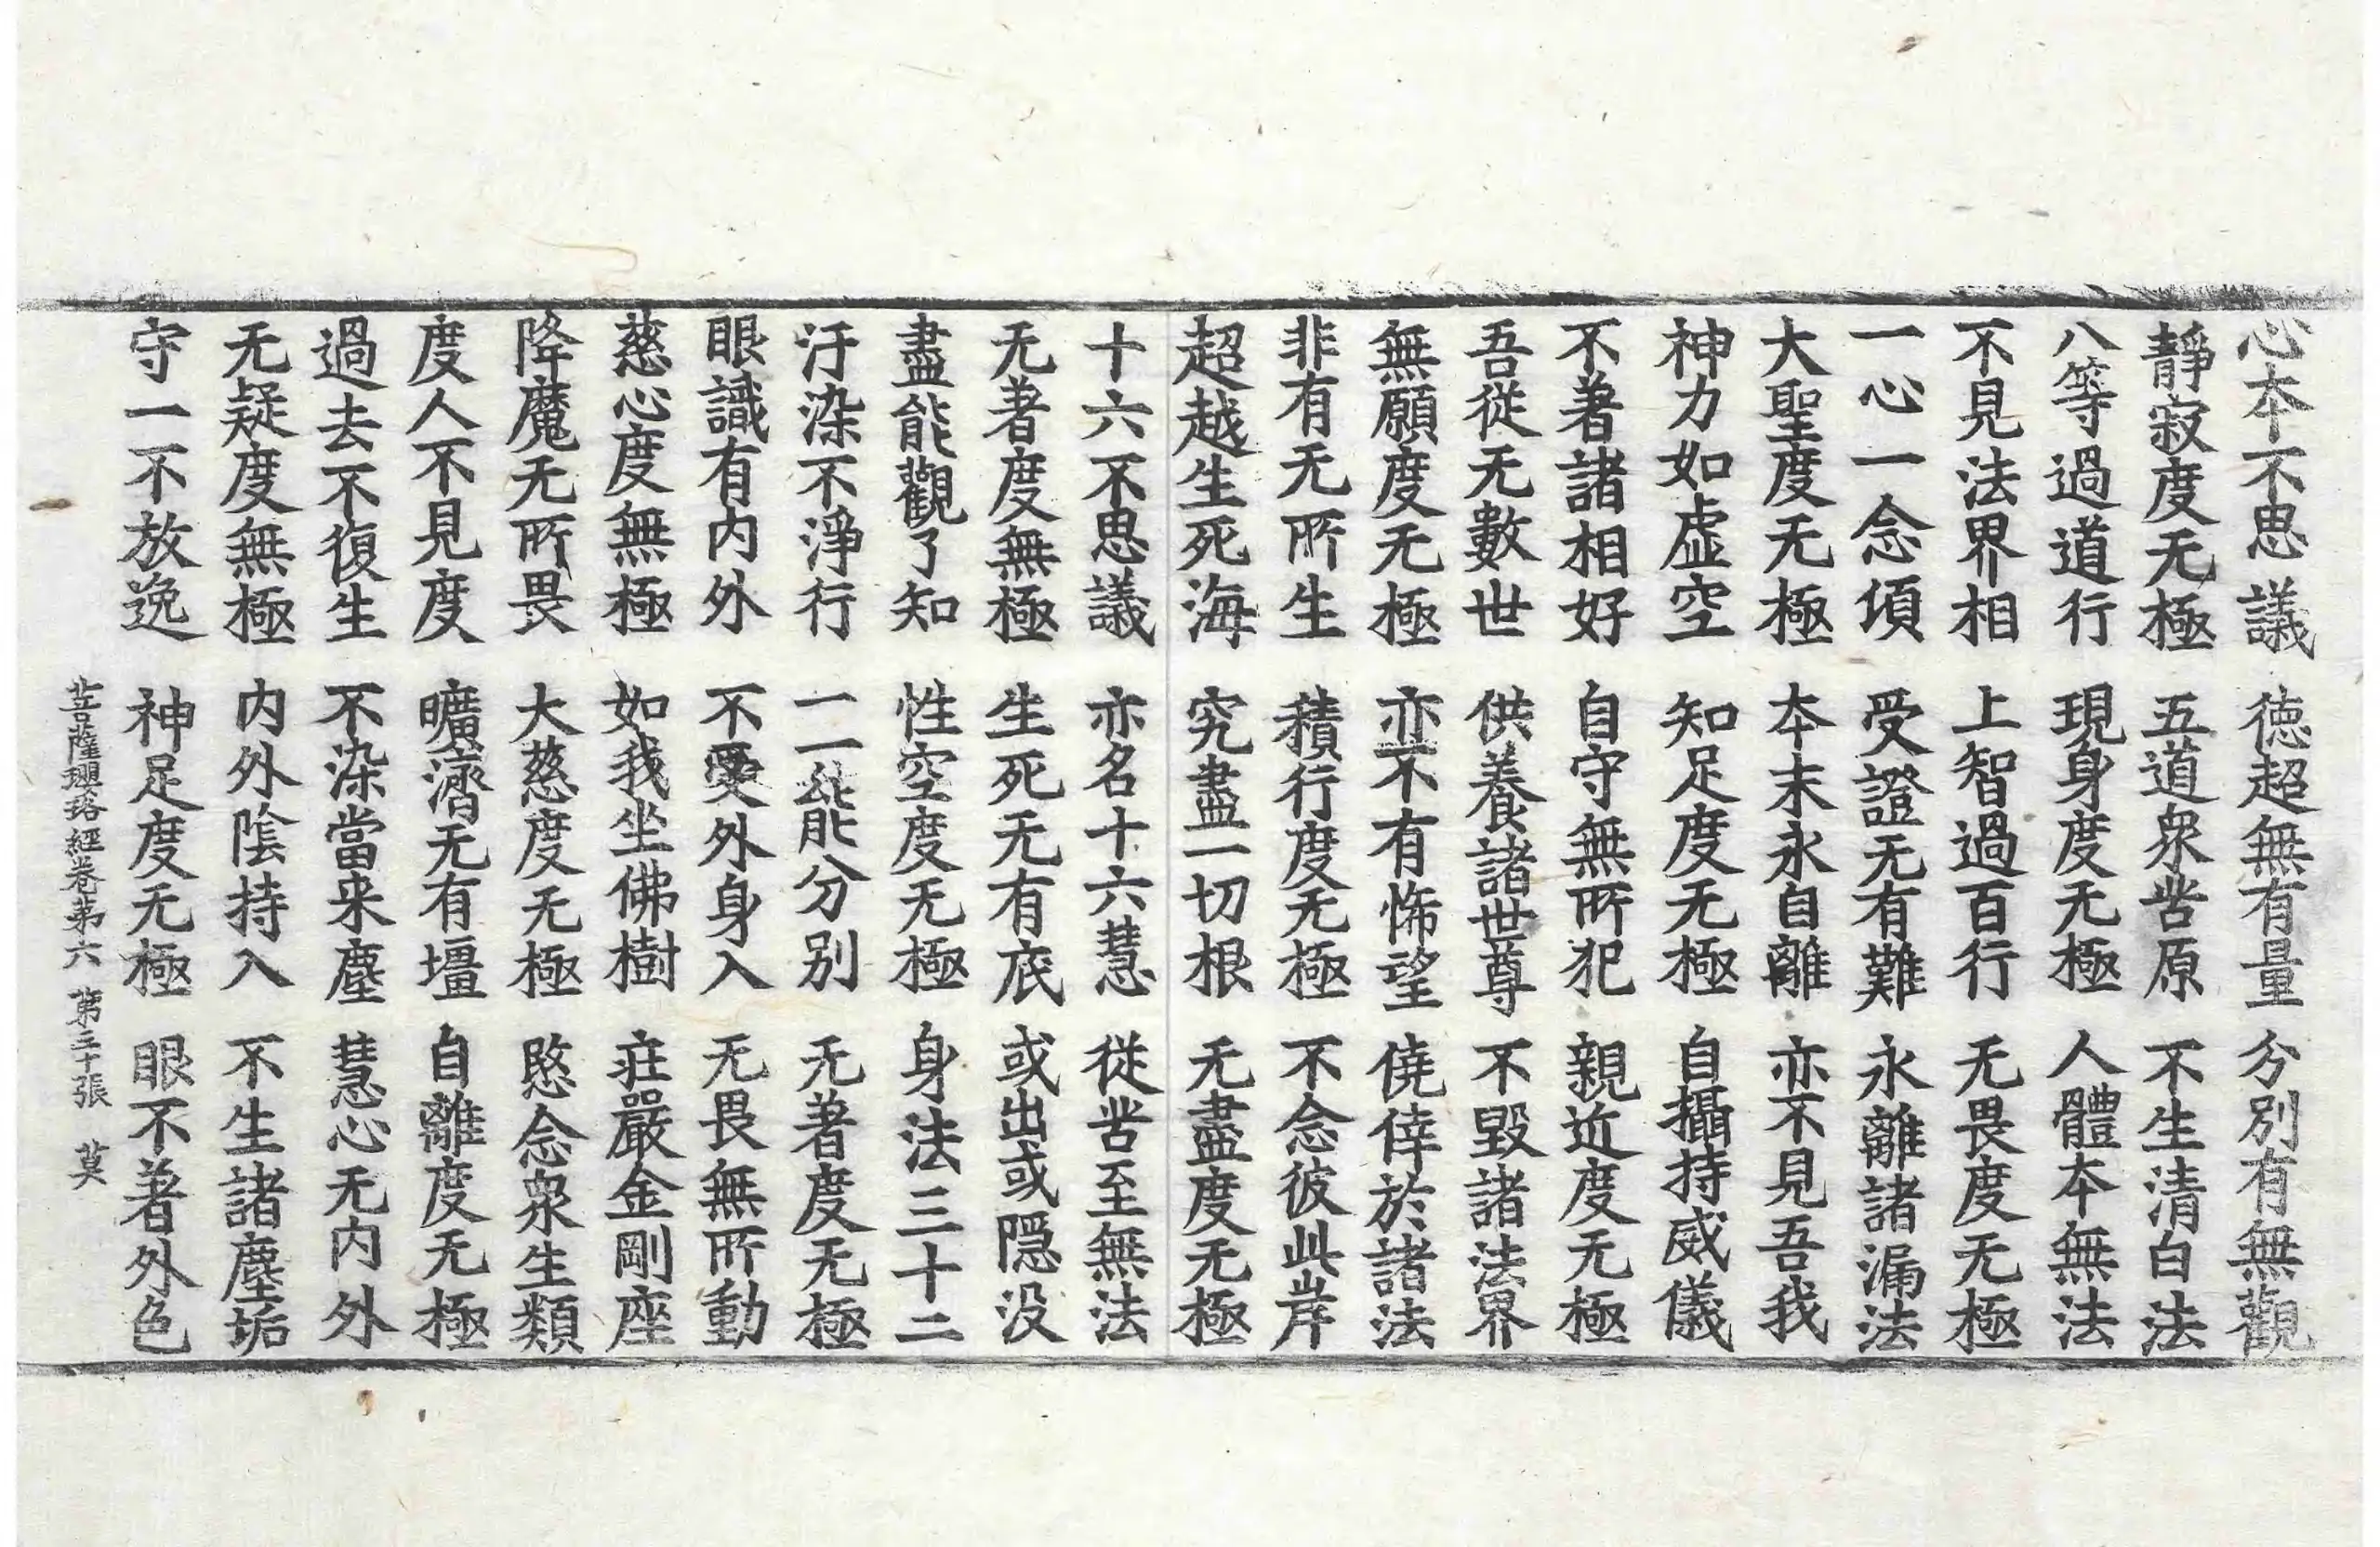 心本不思議 德超無有量 分別有無觀
靜寂度无極 五道衆苦原 不生清白法
八等過道行 現身度无極 人體本無法
不見法界相 上智過百行 无畏度无極
一心一念頃 受證无有難 永離諸漏法
大聖度无極 本末永自離 亦不見吾我
神力如虛空 知足度无極 自攝持威儀
不著諸相好 自守無所犯 親近度无極
吾從无數世 供養諸世尊 不毀諸法界
無願度无極 亦不有悕望 僥倖於諸法
非有无所生 積行度无極 不念彼此岸
超越生死海 究盡一切根 无盡度无極
十六不思議 亦名十六慧 從苦至無法
无著度無極 生死无有底 或出或隱没
盡能觀了知 性空度无極 身法三十二
汙染不淨行 一一能分別 无著度无極
眼識有内外 不受外身入 无畏無所動
慈心度無極 如我坐佛樹 莊嚴金剛座
降魔无所畏 大慈度无極 愍念衆生類
度人不見度 曠濟无有壃 自離度无極
過去不復生 不染當来塵 慧心无内外
无疑度無極 内外陰持入 不生諸塵垢
守一不放逸 神足度无極 眼不著外色
菩薩瓔珞經卷第六 第三十張 莫